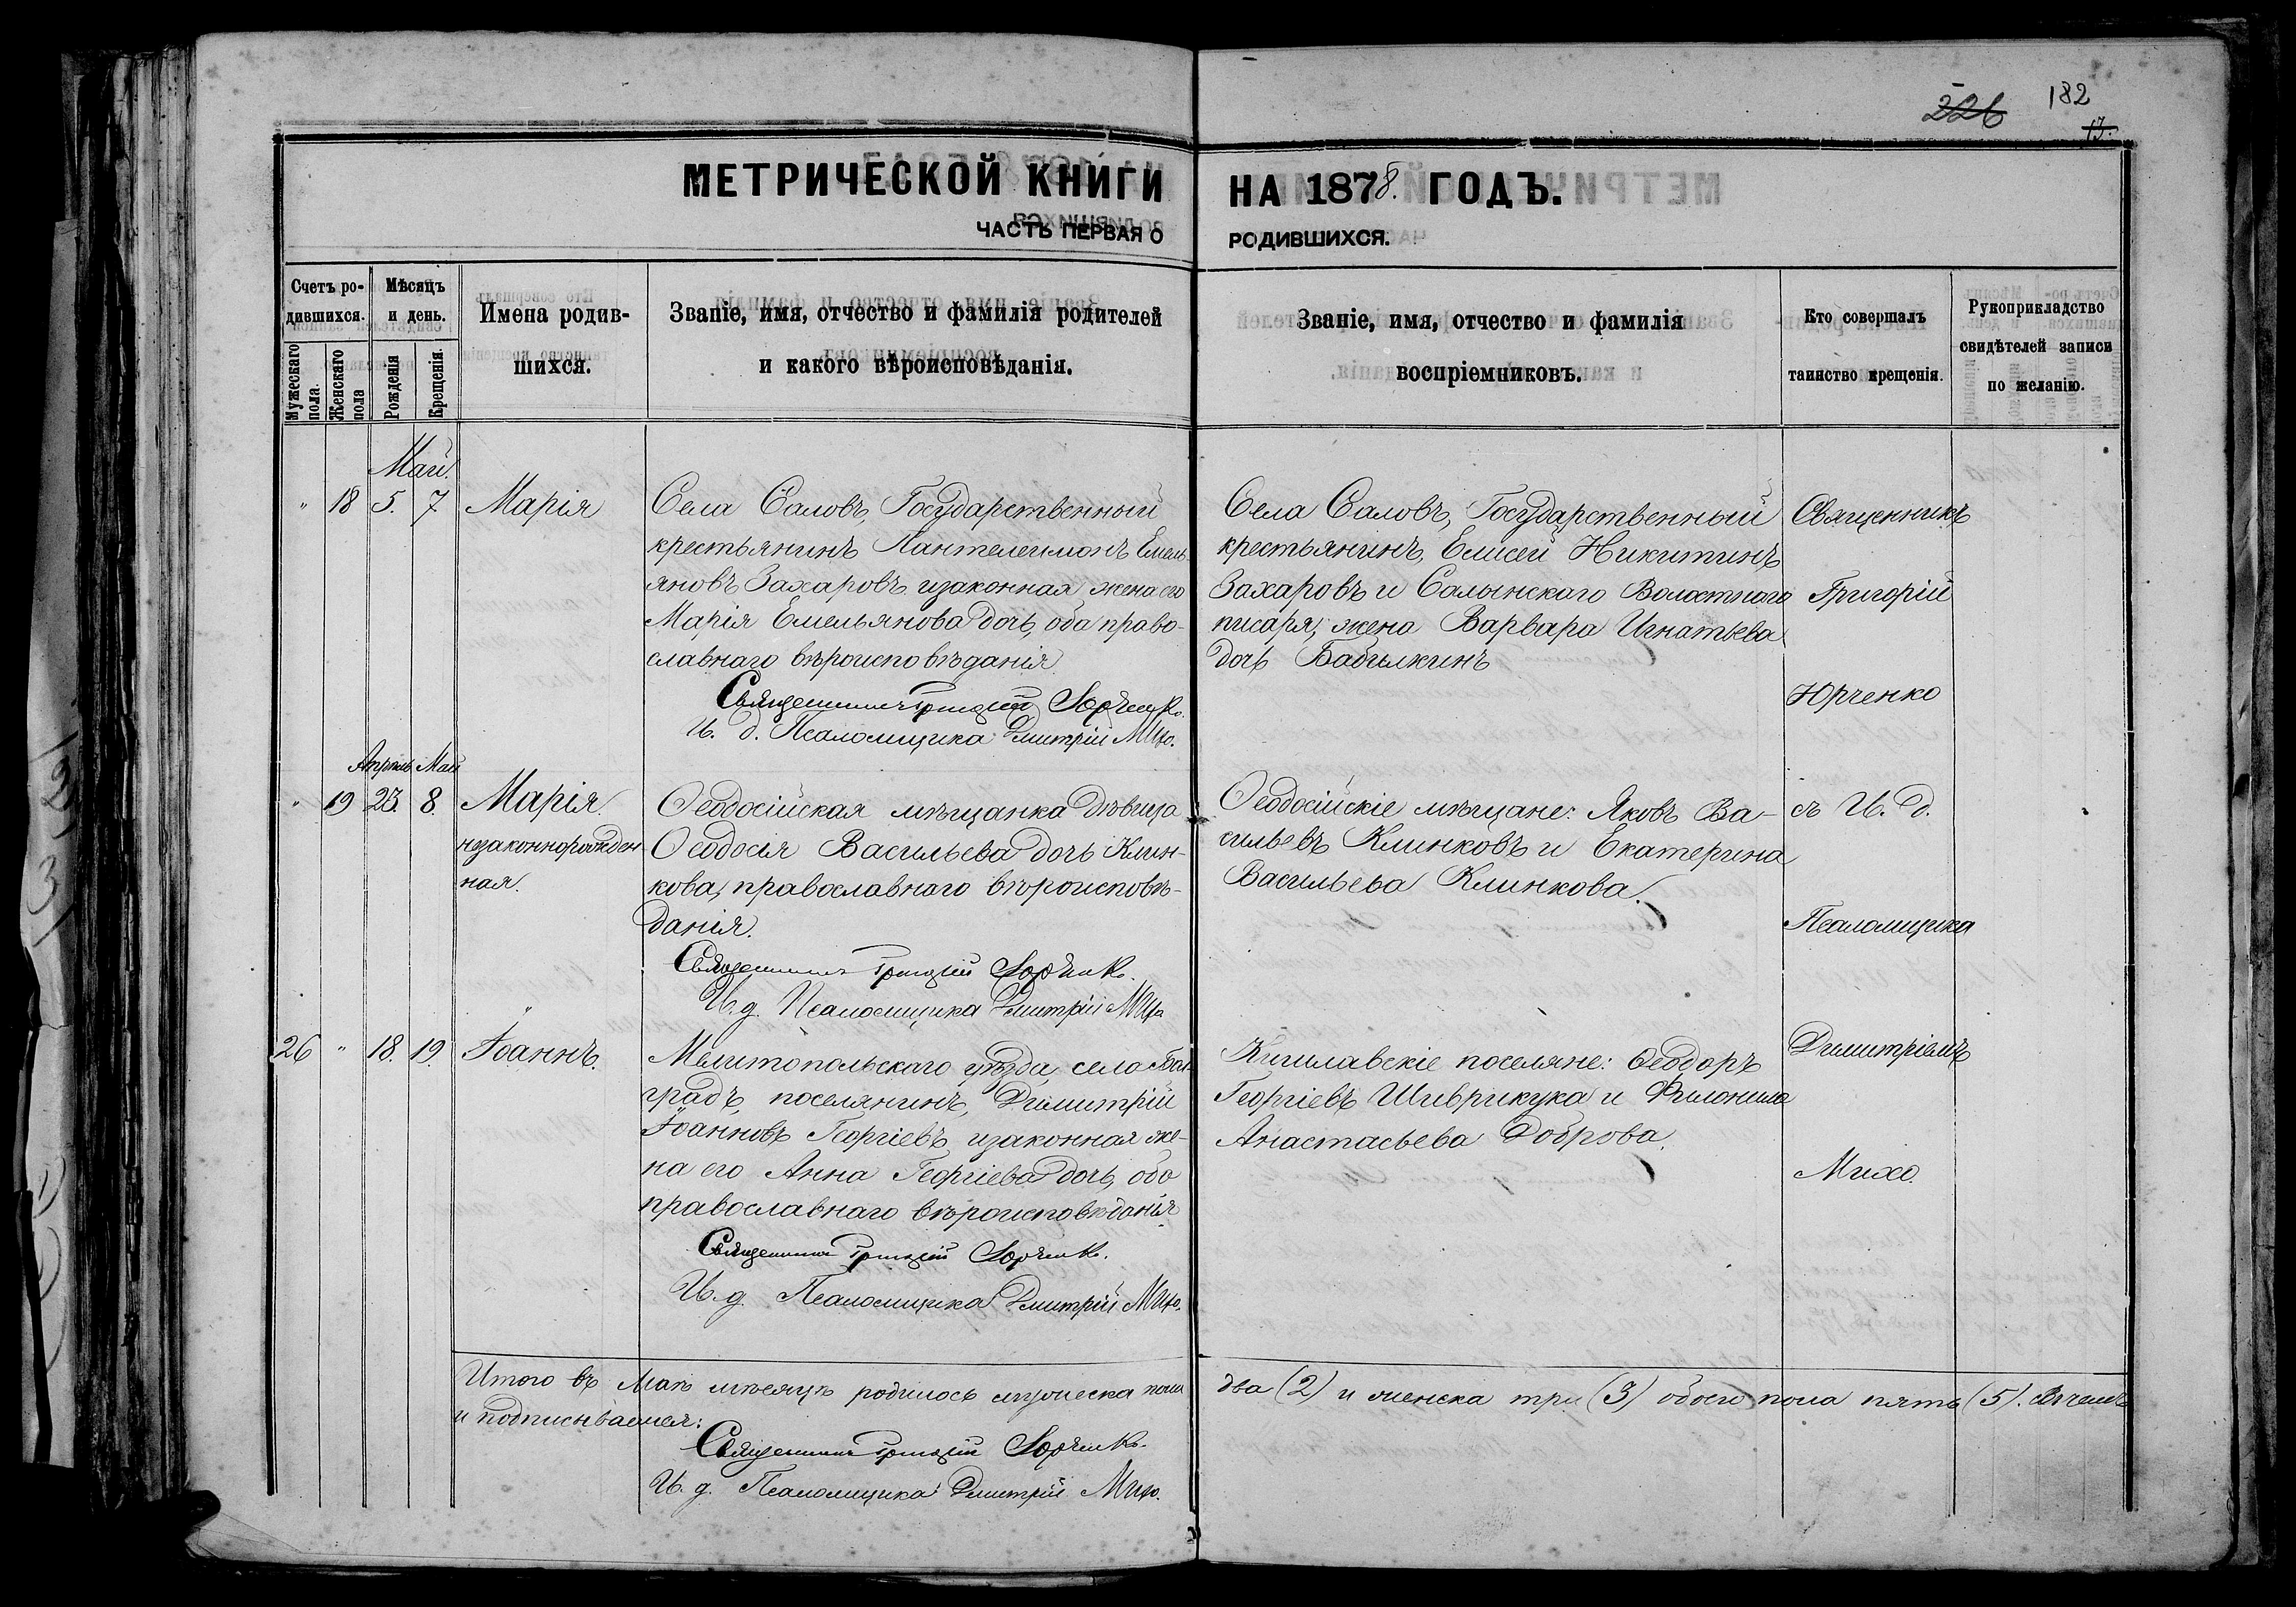 226 182
13.
МЕТРИЧЕСКОЙ КНИГИ НА 1878. ГОДЪ.
ЧАСТЬ ПЕРВАЯ О РОДИВШИХСЯ.
Счетъ ро-
дившихся.
Мужескаго
пола.
Женскаго
пола
Мѣсяцъ
и день.
Рожденія
Крещенія.
Имена родив-
шихся.
Званіе, имя, отчество и фамилія родителей
и какого вѣроисповѣданія.
Званіе, имя, отчество и фамилія
воспріемниковъ.
Кто совершалъ
таинство крещенія.
Рукоприкладство
свидѣтелей записи
по желанію.
Май.
" 18 5. 7 Марія
Села Саловъ, Государственный
крестьянинъ Пантелеимонъ Емель
яновъ Захаровъ изаконная жена его
Марія Емельянова дочь, оба право-
славнаго вѣроисповѣданія
Священникъ Григорій Юрченко.
И. д. Псаломщика Дмитрій Михо.
Села Саловъ, Государственный
крестьянинъ, Елисей Никитинъ
Захаровъ и Салынскаго Волостнаго
писаря, жена Варвара Игнатьева
дочь Бабилкинъ
Священникъ
Григорій
Юрченко
Апрѣль Май
" 19 23. 8. Марія
незаконнорожден
ная.
Ѳеодосійская мѣщанка дѣвица
Ѳеодосія Васильева дочь Клин-
кова, православнаго вѣроисповѣ-
данія.
Священникъ Григорій Юрченко.
И. д. Псаломщика Дмитрій Михо
Ѳеодосійскіе мѣщане: Яковъ Ва-
сильевъ Клинковъ и Екатерина
Васильева Клинкова.
съ И. д.
Псаломщика
26 " 18. 19. Іоаннъ.
Мелитопольскаго уѣзда, село Бол
градъ, поселянинъ, Димитрій
Іоанновъ Георгіевъ изаконная же-
на его Анна Георгіева дочь, оба
православнаго вѣроисповѣданія
Священникъ Григорій Юрченко.
И. д. Псаломщика Дмитрій Михо.
Кишлавскіе поселяне: Ѳеодоръ
Георгіевъ Шиврикука и Филонила
Анастасьева Доброва.
Димитріемъ
Михо.
Итого въ Маѣ мѣсяцѣ родилось мужеска пола два (2) и женска три (3) обоего пола пять (5). Въ чемъ
и подписываемся:
Священникъ Григорій Юрченко.
И. д. Псаломщика Дмитрій Михо.